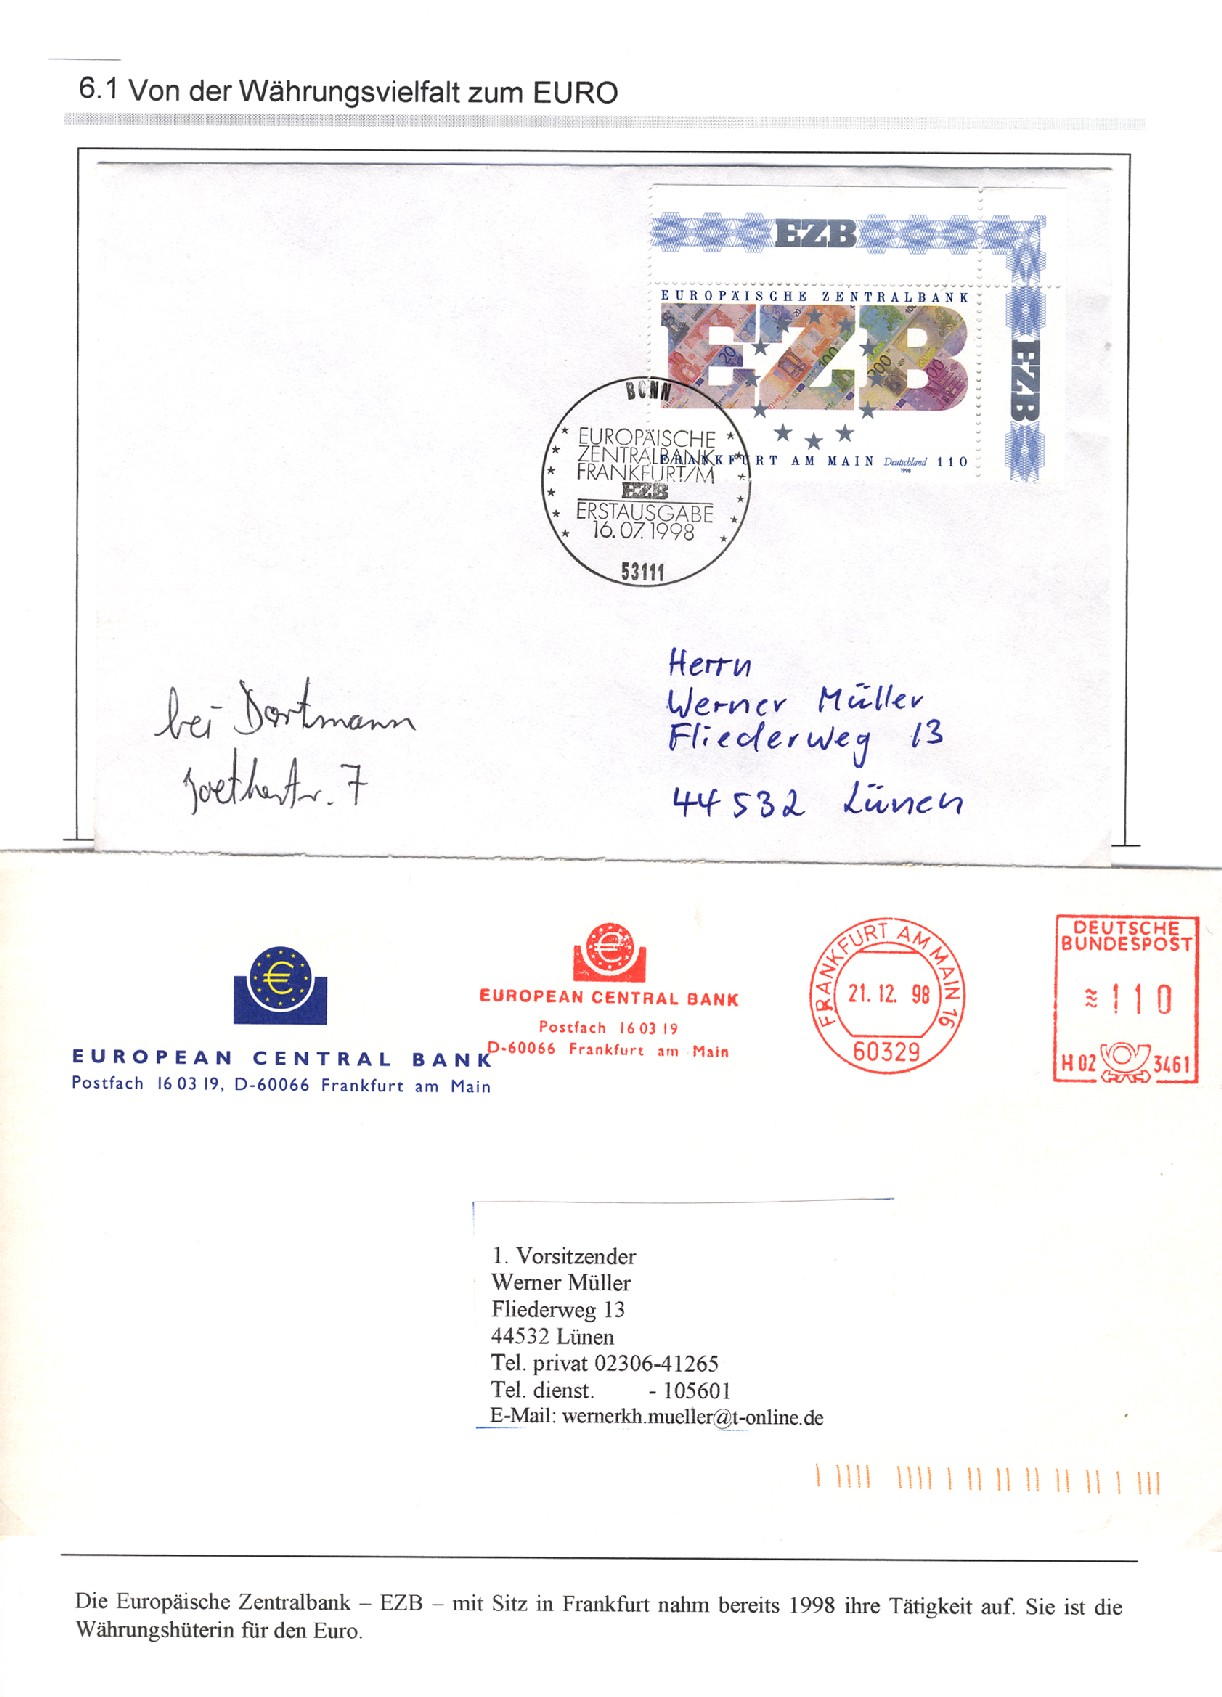 6.1 Von der Währungsvielfalt zum EURO
EZB
EZB
EUROPÄISCHE ZENTRALBANK
EZB
20
100
200
FRANKFURT AM MAIN Deutschland 110
1998
BONN
EUROPÄISCHE
ZENTRALBANK
FRANKFURT/M
EZB
ERSTAUSGABE
16.07.1998
53111
bei Dortmann
Goethestr. 7
Herrn
Werner Müller
Fliederweg 13
44532 Lünen
EUROPEAN CENTRAL BANK
Postfach 16 03 19, D-60066 Frankfurt am Main
EUROPEAN CENTRAL BANK
Postfach 16 03 19
D-60066 Frankfurt am Main
FRANKFURT AM MAIN 16
21.12.98
60329
DEUTSCHE
BUNDESPOST
110
H 02 3461
1. Vorsitzender
Werner Müller
Fliederweg 13
44532 Lünen
Tel. privat 02306-41265
Tel. dienst. - 105601
E-Mail: wernerkh.mueller@t-online.de
Die Europäische Zentralbank – EZB – mit Sitz in Frankfurt nahm bereits 1998 ihre Tätigkeit auf. Sie ist die
Währungshüterin für den Euro.